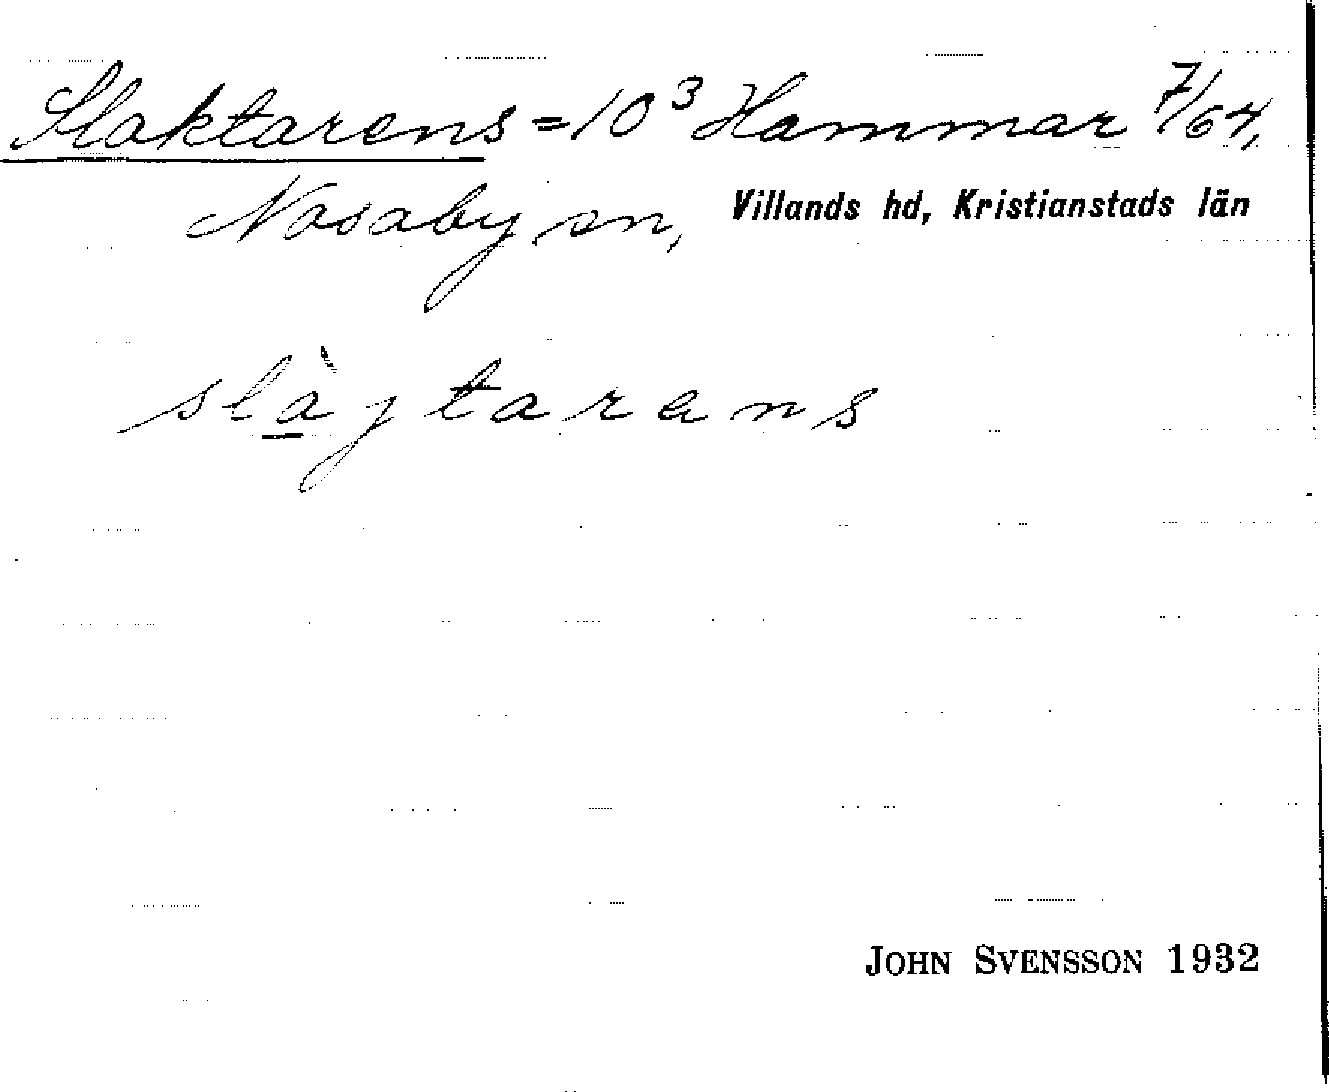 Slaktarens = 10³ Hammar 7/64,
Nosaby sn, Villands hd, Kristianstads län
slàjtarans
JOHN SVENSSON 1932